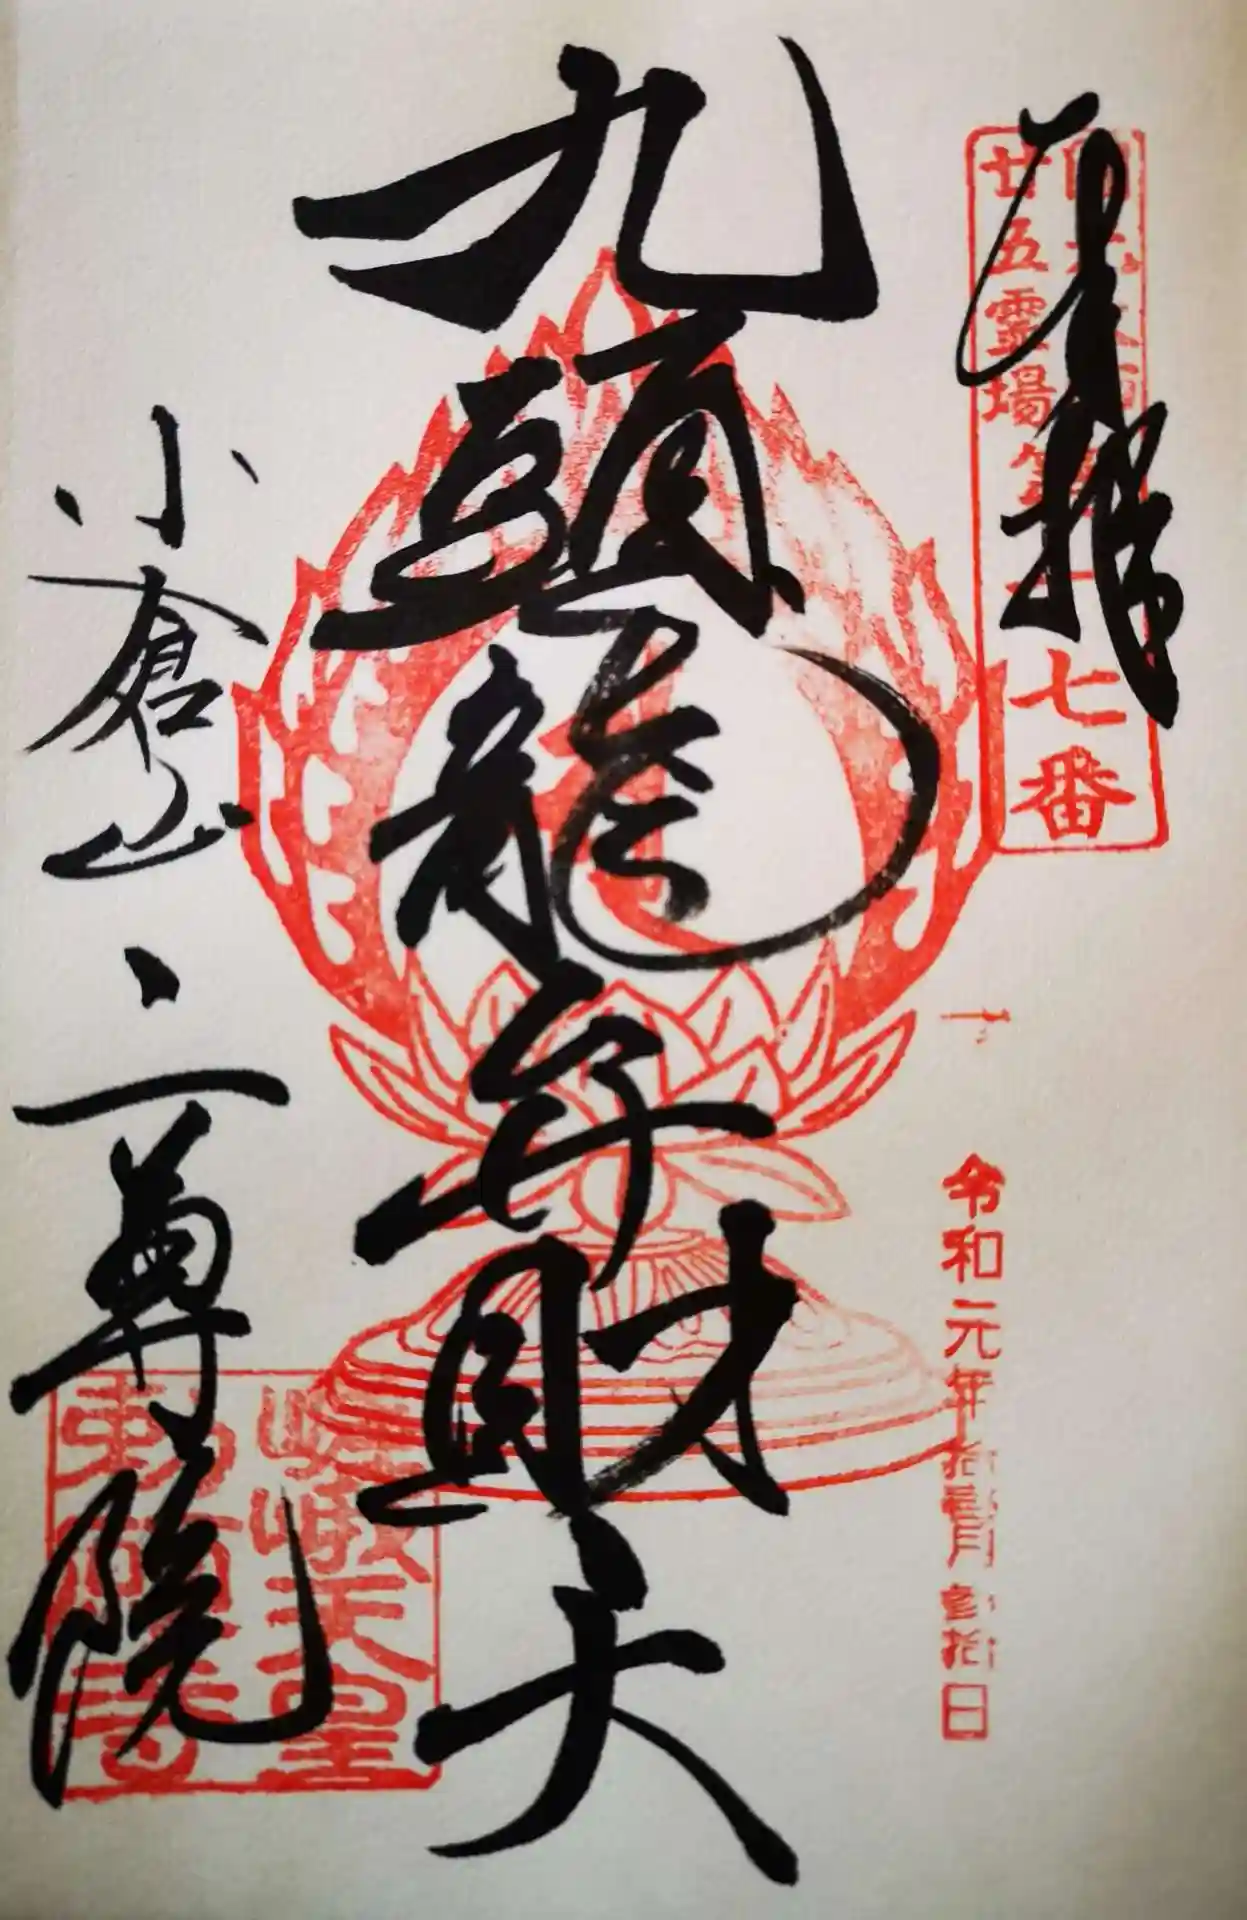 奉拝
廿五霊場第十七番
九頭龍弁財天
令和元年拾壹月参拾日
小倉山二尊院
嵯峨天皇
勅願